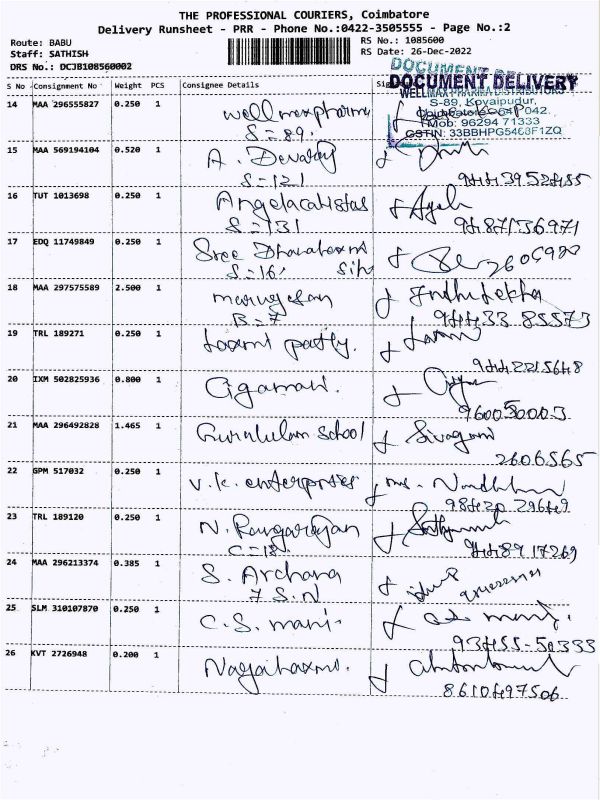 THE PROFESSIONAL COURIERS, Coimbatore
Delivery Runsheet - PRR - Phone No.:0422-3505555 - Page No.:2
Route: BABU
RS No.: 1085600
Staff: SATHISH
RS Date: 26-Dec-2022
DRS No.: DCJB108560002
DOCUMENT
DOCUMENT DELIVERY
S No Consignment No Weight PCS Consignee Details
WELLMAX PHARMA DISTRIBUTORS
S-89, Kovaipudur,
Coimbatore-641 042.
Mob: 96294 71333
GSTIN: 33BBHPG5463F1ZQ
14 MAA 296555827 0.250 1 wellmaxpharma
S=89.
15 MAA 569194104 0.520 1 A. Devaraj
S=121
16 TUT 1013698 0.250 1 Angelacatistas
S=131
9487136971
17 EDQ 11749849 0.250 1 Sree
S=16
18 MAA 297575589 2.500 1 murugesan Indhulekha
B=7 94433 85573
19 TRL 189271 0.250 1 Laxmi
9442215648
20 IXM 502825936 0.800 1
21 MAA 296492828 1.465 1 Gurukulam School Sivagami
2606565
22 GPM 517032 0.250 1 V.K. enterprises
98420 29649
23 TRL 189120 0.250 1 N. Rangarajan
C=18
94489 17269
24 MAA 296213374 0.385 1 S. Archana
7 S.N
25 SLM 310107870 0.250 1 C.S. mani
93455-50333
26 KVT 2726948 0.200 1 Nagalaxmi.
8610497506